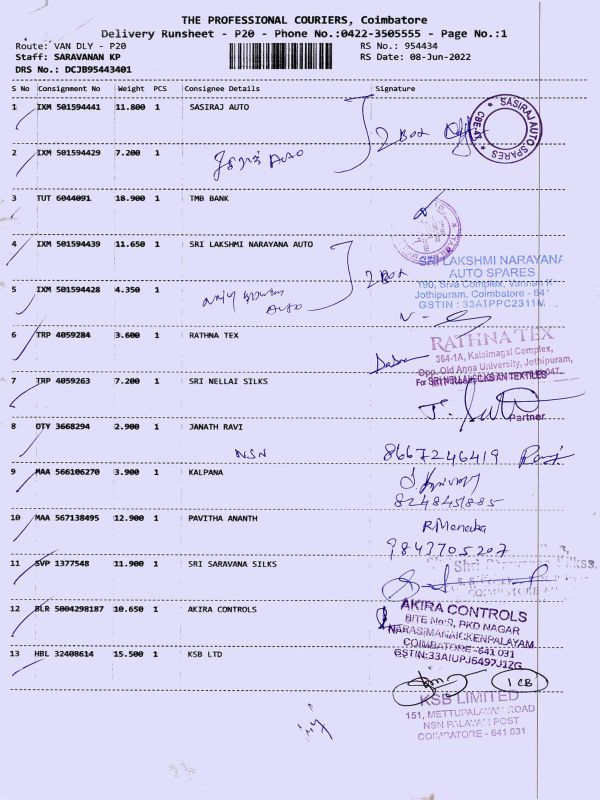 THE PROFESSIONAL COURIERS, Coimbatore
Delivery Runsheet - P20 - Phone No.:0422-3505555 - Page No.:1
Route: VAN DLY - P20
RS No.: 954434
Staff: SARAVANAN KP
RS Date: 08-Jun-2022
DRS No.: DCJB95443401
S No Consignment No Weight PCS Consignee Details Signature
1 IXM 501594441 11.800 1 SASIRAJ AUTO
2 Box
SASIRAJ AUTO SPARES
CBE-41
2 IXM 501594429 7.200 1
Auto
3 TUT 6044091 18.900 1 TMB BANK
4 IXM 501594439 11.650 1 SRI LAKSHMI NARAYANA AUTO
2 Box
SRI LAKSHMI NARAYANA
AUTO SPARES
190, Siva Complex,
Jothipuram, Coimbatore - 641
GSTIN : 33AIPPC2311M
5 IXM 501594428 4.350 1
Auto
6 TRP 4059284 3.600 1 RATHNA TEX
RATHNA TEX
364-1A, Kalaimagal Complex,
Opp. Old Anna University, Jothipuram,
7 TRP 4059263 7.200 1 SRI NELLAI SILKS
Partner
8 OTY 3668294 2.900 1 JANATH RAVI
NSN
8667246419
9 MAA 566106270 3.900 1 KALPANA
10 MAA 567138495 12.900 1 PAVITHA ANANTH
9843705207
11 SVP 1377548 11.900 1 SRI SARAVANA SILKS
12 BLR 5004298187 10.650 1 AKIRA CONTROLS
AKIRA CONTROLS
SITE No:9, PKD NAGAR
NARASIMANAICKENPALAYAM
COIMBATORE - 641 031
GSTIN:33AIUPJ6497J1ZG
13 HBL 32408614 15.500 1 KSB LTD
1 CB
KSB LIMITED
151, METTUPALAYAM ROAD
NSN PALAYAM POST
COIMBATORE - 641 031